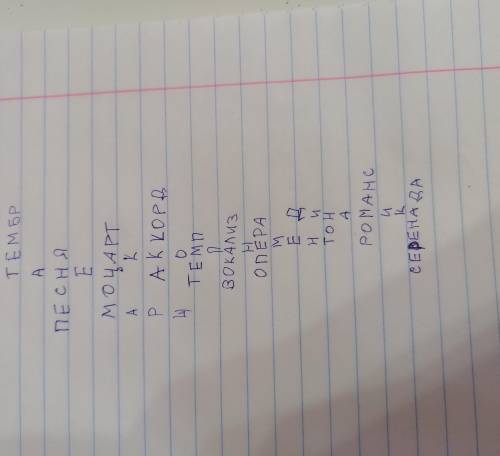 ТЕМБР
А
ПЕСНЯ
Е
МОЦАРТ
А К
Р АККОРД
Щ О
ТЕМП
ВОКАЛИЗ
Н
ОПЕРА
М
Е Д
Н И
ТОН
А
РОМАНС
И
К
СЕРЕНАДА